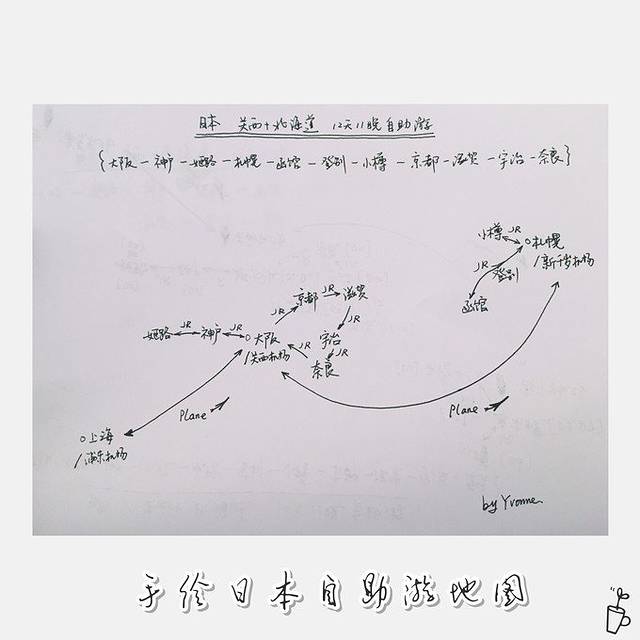 日本 关西+北海道 12天11晚自助游
{大阪－神户－姬路－札幌－函馆－登别－小樽－京都－滋贺－宇治－奈良}
小樽 JR 札幌
/新千岁机场
JR 登别
函馆
京都 JR 滋贺
JR JR
姬路 JR 神户 JR 大阪 JR 宇治
/关西机场 JR
奈良
Plane Plane
上海
/浦东机场
by Yvonne
手绘日本自助游地图